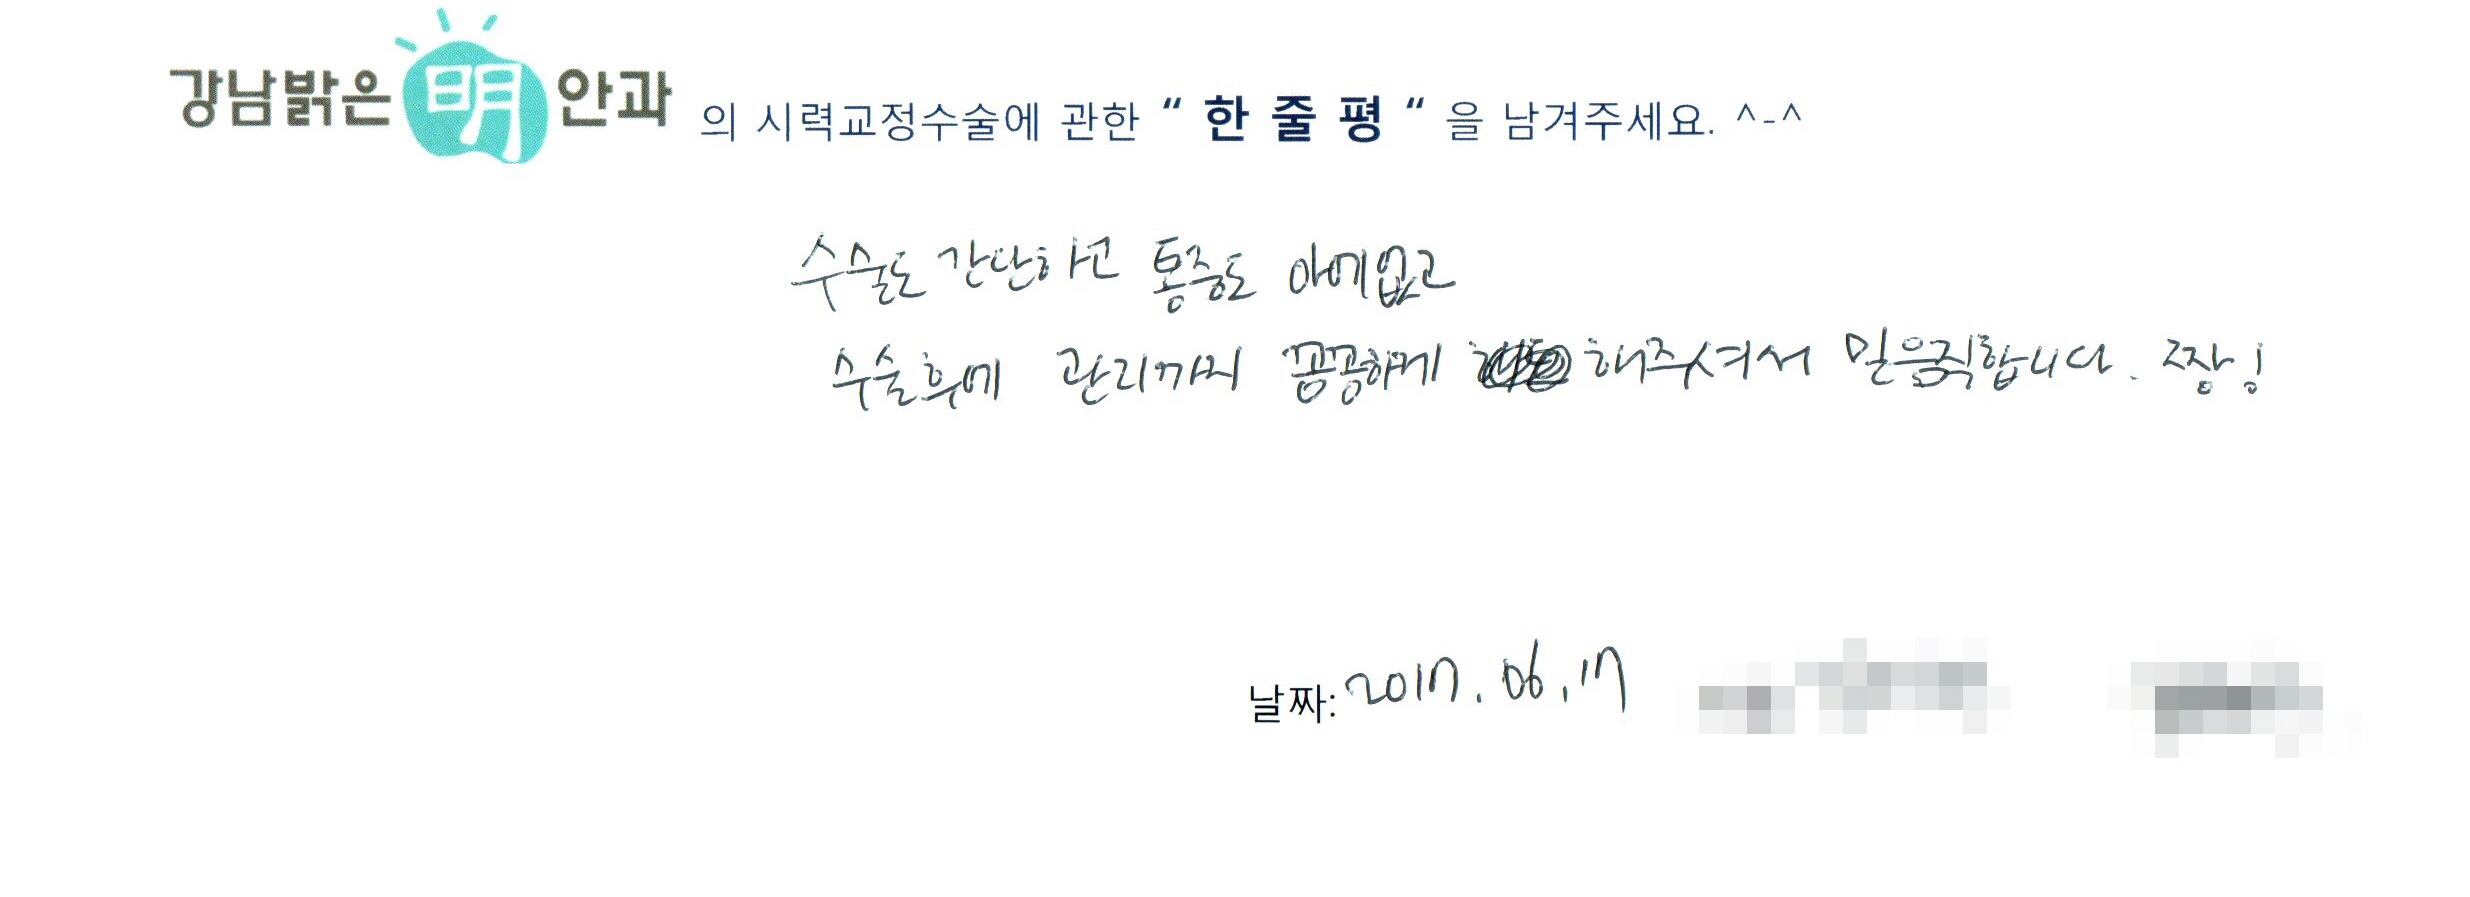 강남밝은明안과 의 시력교정수술에 관한 “ 한 줄 평 “ 을 남겨주세요. ^-^
수술도 간단하고 통증도 아에없고
수술후에 관리까지 꼼꼼하게 해주셔서 믿음직합니다. 짱!
날짜: 2017. 06. 17